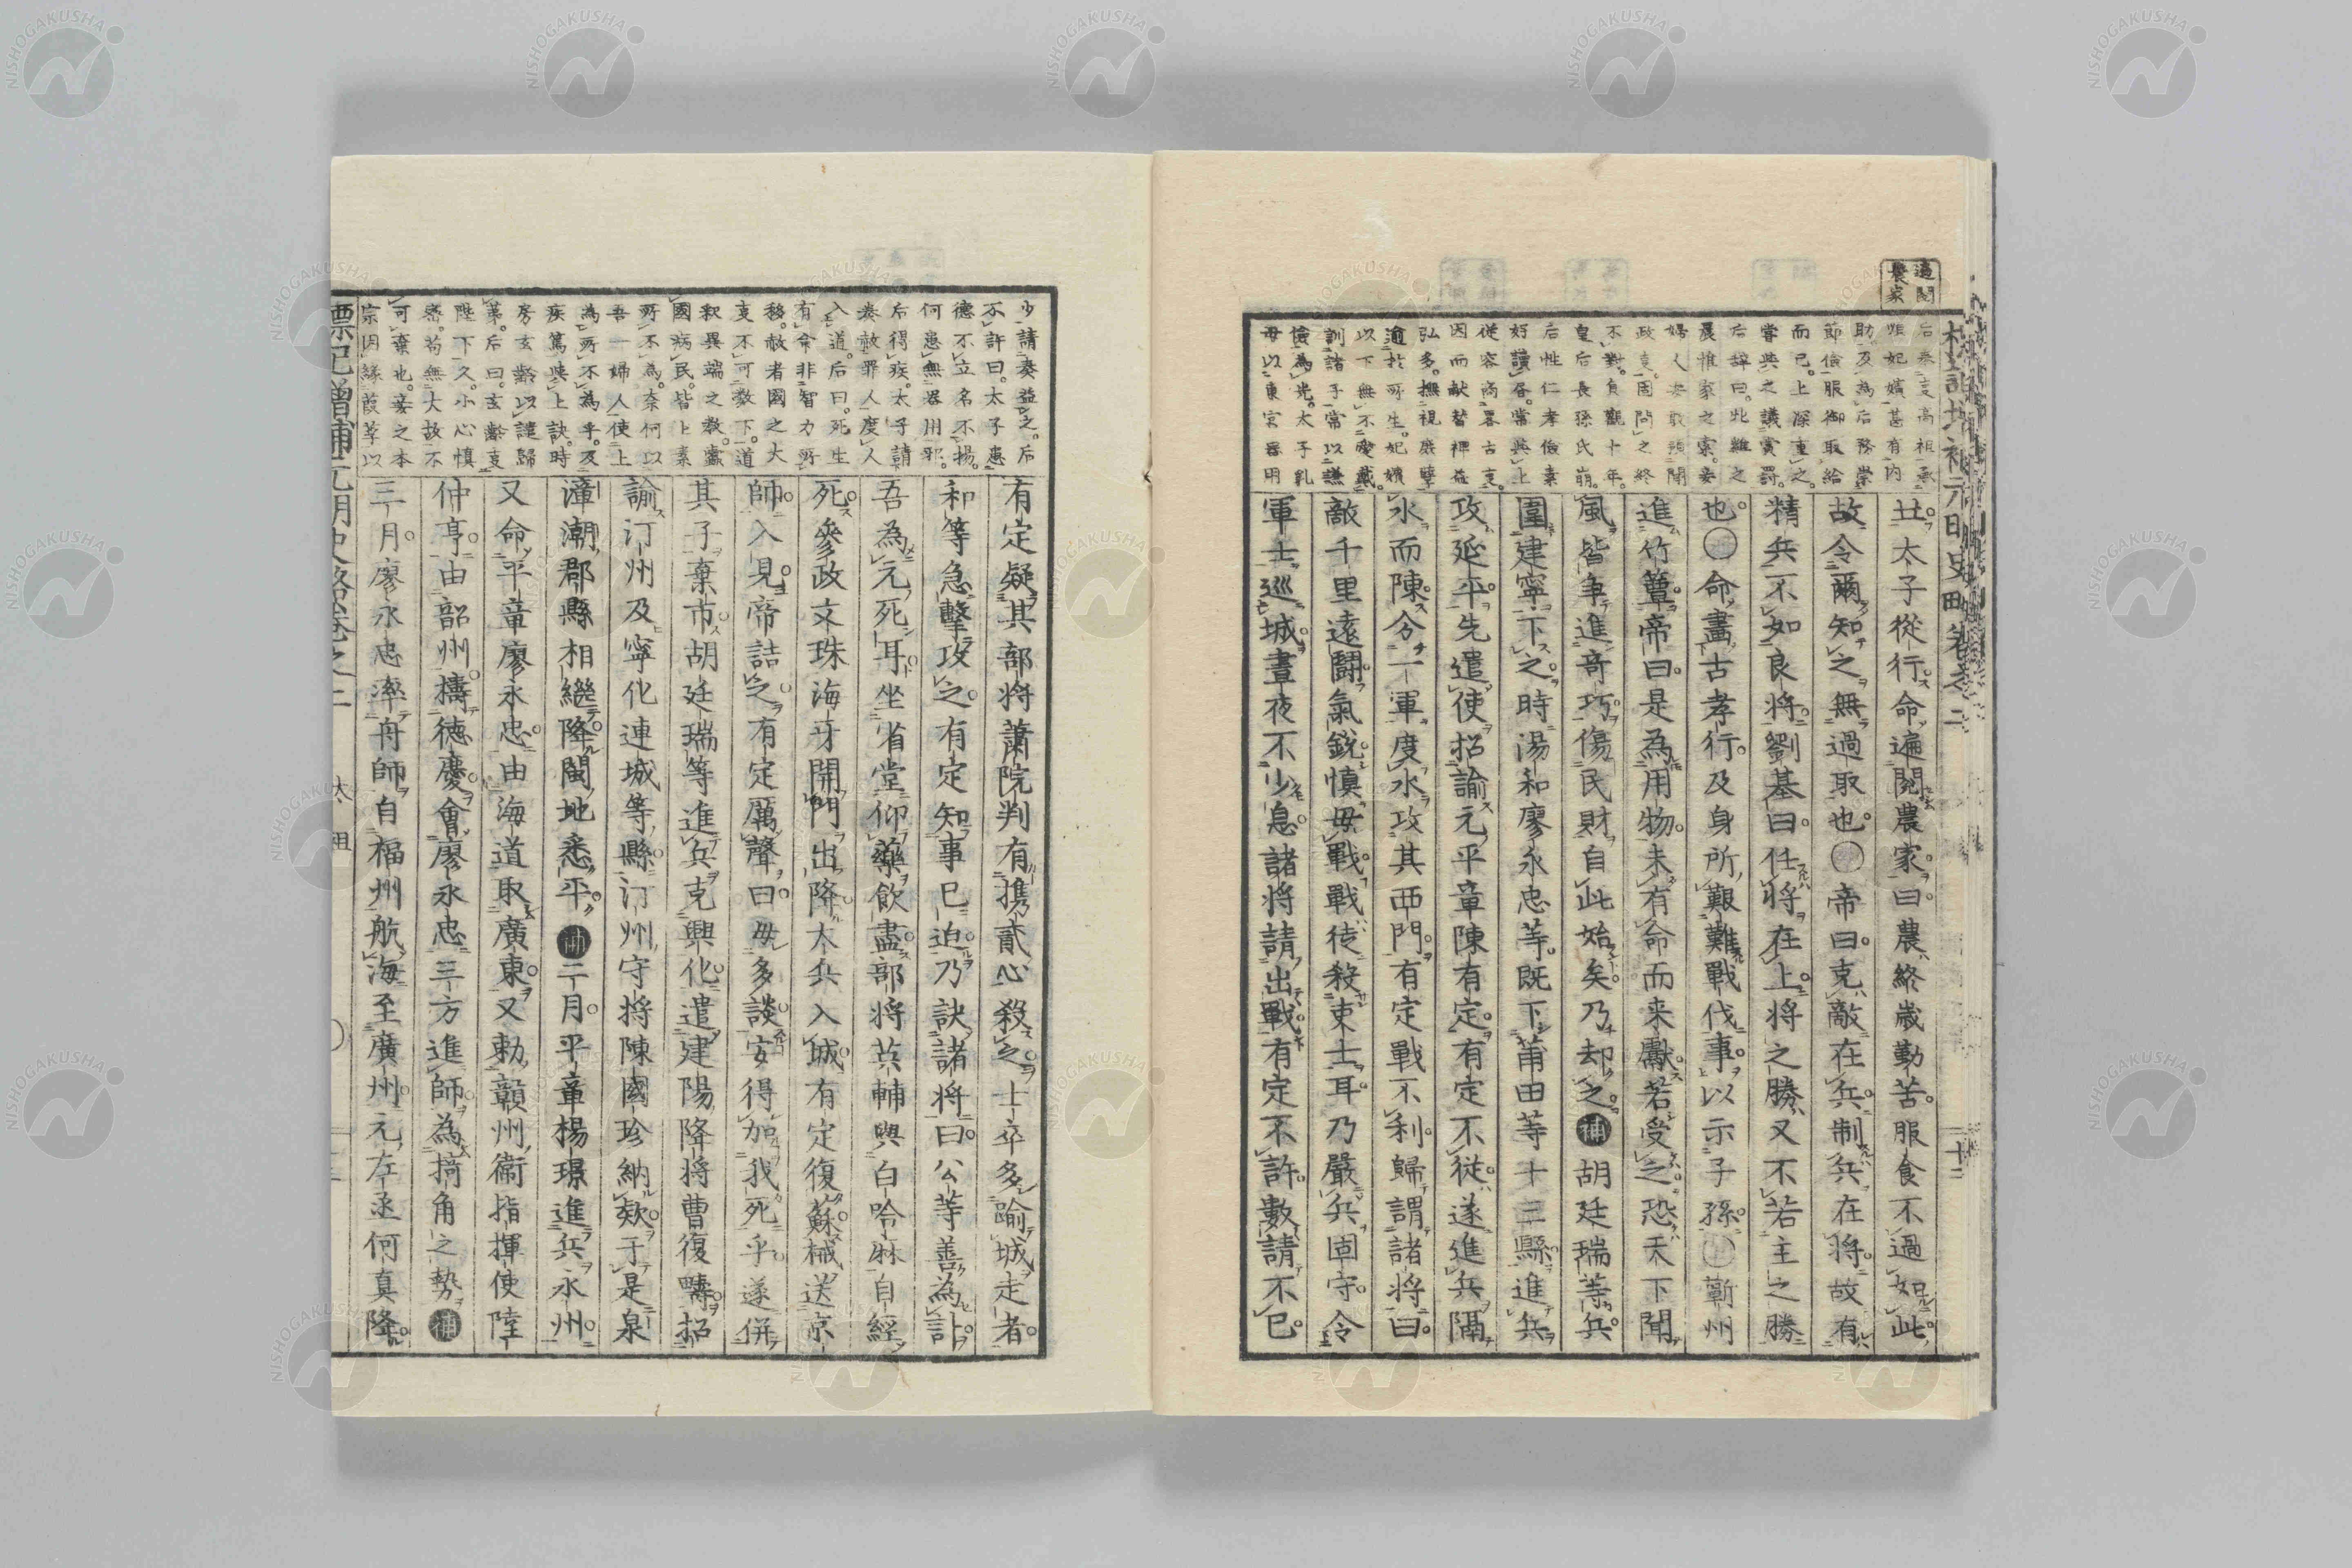 遍閲
農家
后奉事高祖承
順妃嬪甚有内
助及為后務崇
節儉服御取給
而已上深重之
嘗與之議賞罰
后辞曰牝雞之
晨惟家之索妾
婦人安敢預聞
政事固問之終
不對貞觀十年
皇后長孫氏崩
后性仁孝儉素
好讀書常與上
從容商畧古事
因而献替裨益
弘多撫視庶孽
逾於所生妃嬪
以下無不愛戴
訓諸子常以謙
儉為先太子乳
母以東宮器用
圡太子從行命遍閲農家曰農終歳勤苦服食不過如此
故令爾知之無過取也帝曰克敵在兵制兵在将故有
精兵不如良将劉基曰任将在上将之勝又不若主之勝
也命畫古孝行及身所艱難戰伐事以示子孫蘄州
進竹簟帝曰是為用物未有命而来獻若受之恐天下聞
風皆争進竒巧傷民財自此始矣乃却之補胡廷瑞等兵
圍建寧下之時湯和廖永忠等既下莆田等十三縣進兵
攻延平先遣使招諭元平章陳有定有定不從遂進兵隔
水而陳分一軍度水攻其西門有定戰不利歸謂諸将曰
敵千里遠鬪氣銳慎毋戰戰徒殺吏士耳乃嚴兵固守令
軍士巡城晝夜不少息諸将請出戰有定不許數請不已
少請奏益之后
不許曰太子患
德不立名不揚
何患無器用邪
后得疾太子請
奏赦罪人度人
入道后曰死生
有命非智力所
移赦者國之大
事不可數下道
釈異端之教蠹
國病民皆上素
所不為奈何以
吾一婦人使上
為所不為乎及
疾篤與上訣時
房玄齡以譴歸
第后曰玄齡事
陛下久小心慎
密苟無大故不
可棄也妾之本
宗因緣葭莩以
有定疑其部将蕭院判有携貳心殺之士卒多踰城走者
和等急擊攻之有定知事已迫乃訣諸将曰公等善為計
吾為元死耳坐省堂仰藥飲盡部将共輔輿白哈麻自經
死參政文珠海牙開門出降大兵入城有定復蘇械送京
師入見帝詰之有定厲聲曰毋多談安得加我死乎遂併
其子棄市胡廷瑞等進兵克興化遣建陽降将曹復疇招
諭汀州及寧化連城等縣汀州守将陳國珍納欵于是泉
漳潮郡縣相繼降閩地悉平補二月平章楊璟進兵永州
又命平章廖永忠由海道取廣東又勅贛州衞指揮使陸
仲亨由韶州擣徳慶會廖永忠三方進師為掎角之勢補
三月廖永忠率舟師自福州航海至廣州元左丞何真降
標記增補元明史略巻之二　太祖